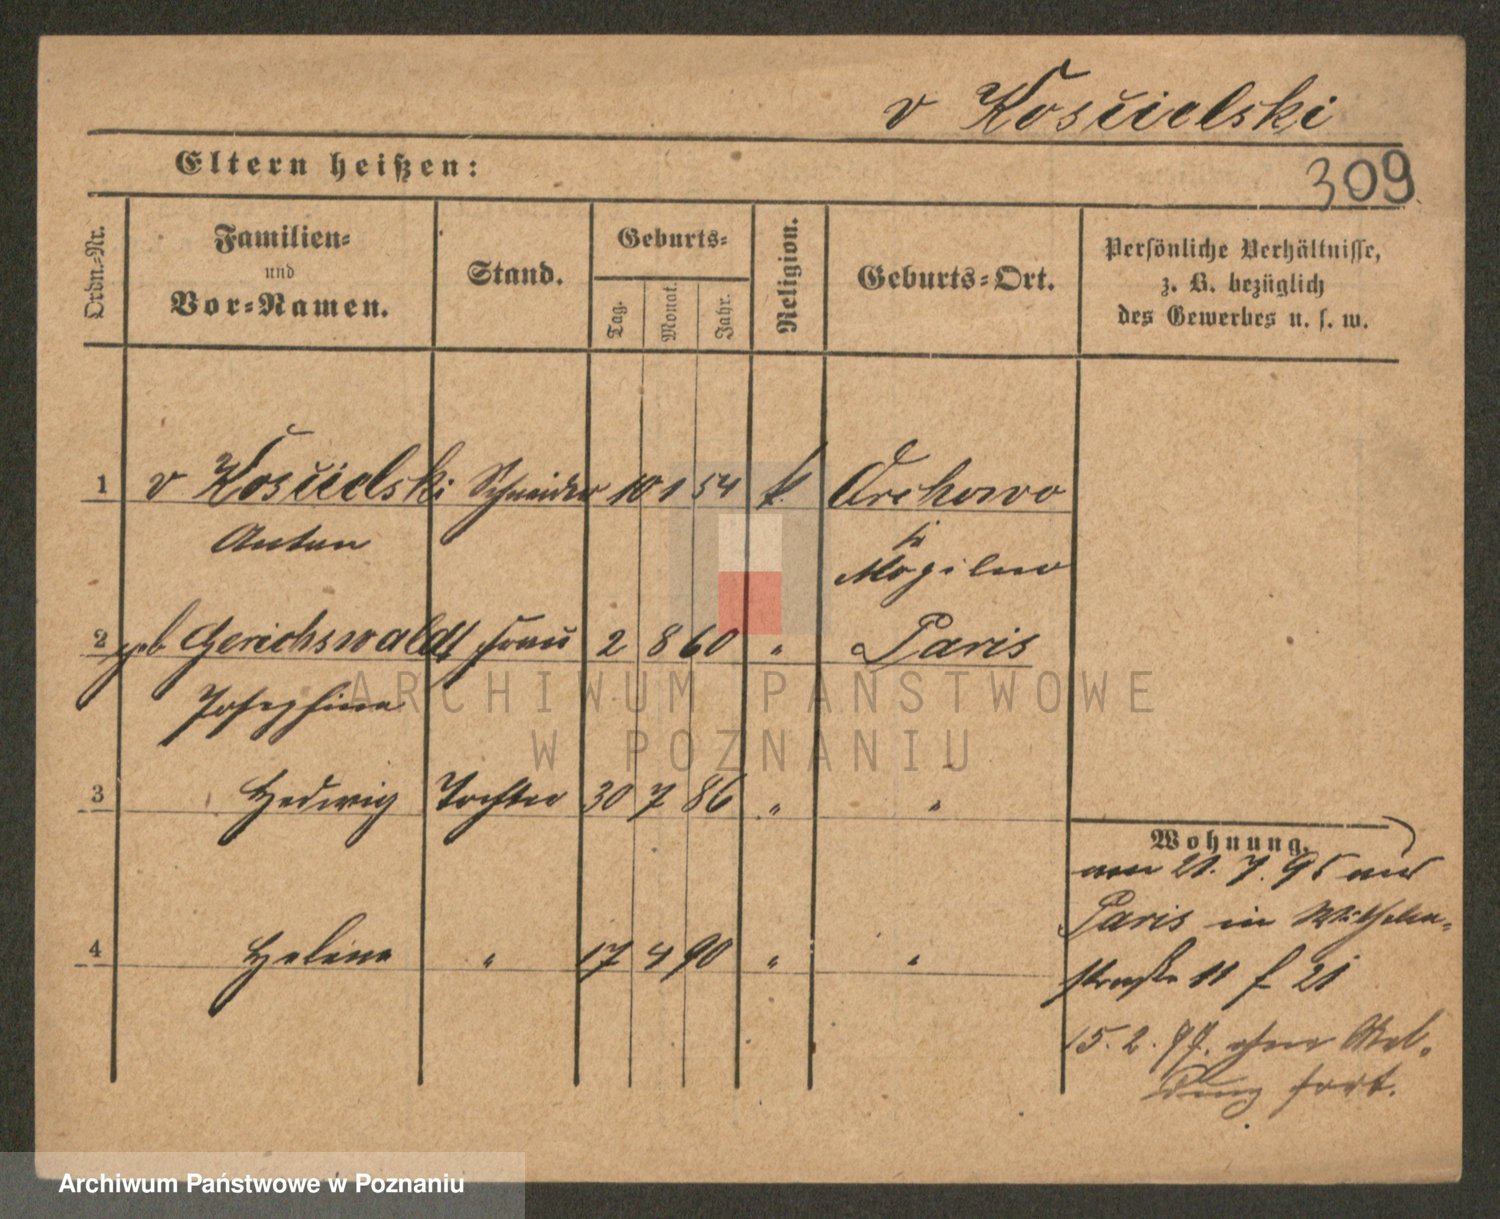 v Kosúielski
Eltern heißen:
309
Ordn.-Nr.
Familien-
und
Vor-Namen.
Stand.
Geburts-
Tag.
Monat.
Jahr.
Religion.
Geburts-Ort.
Persönliche Verhältnisse,
z. B. bezüglich
des Gewerbes u. s. w.
1 v Kosúielski Schneider 10 1 54 k. Orchowo
Anton
Mogilno
2 geb Gerichswaldt Frau 2 8 60 " Paris
Josephine
3 Hedwig Tochter 30 7 86 " "
4 Helene " 17 4 90 " "
Wohnung.
am 21. 7. 95 aus
Paris in Wilhelm-
straße 11 f 21
15. 2. 97. ohne Mel-
dung fort.
ARCHIWUM PAŃSTWOWE
W POZNANIU
Archiwum Państwowe w Poznaniu